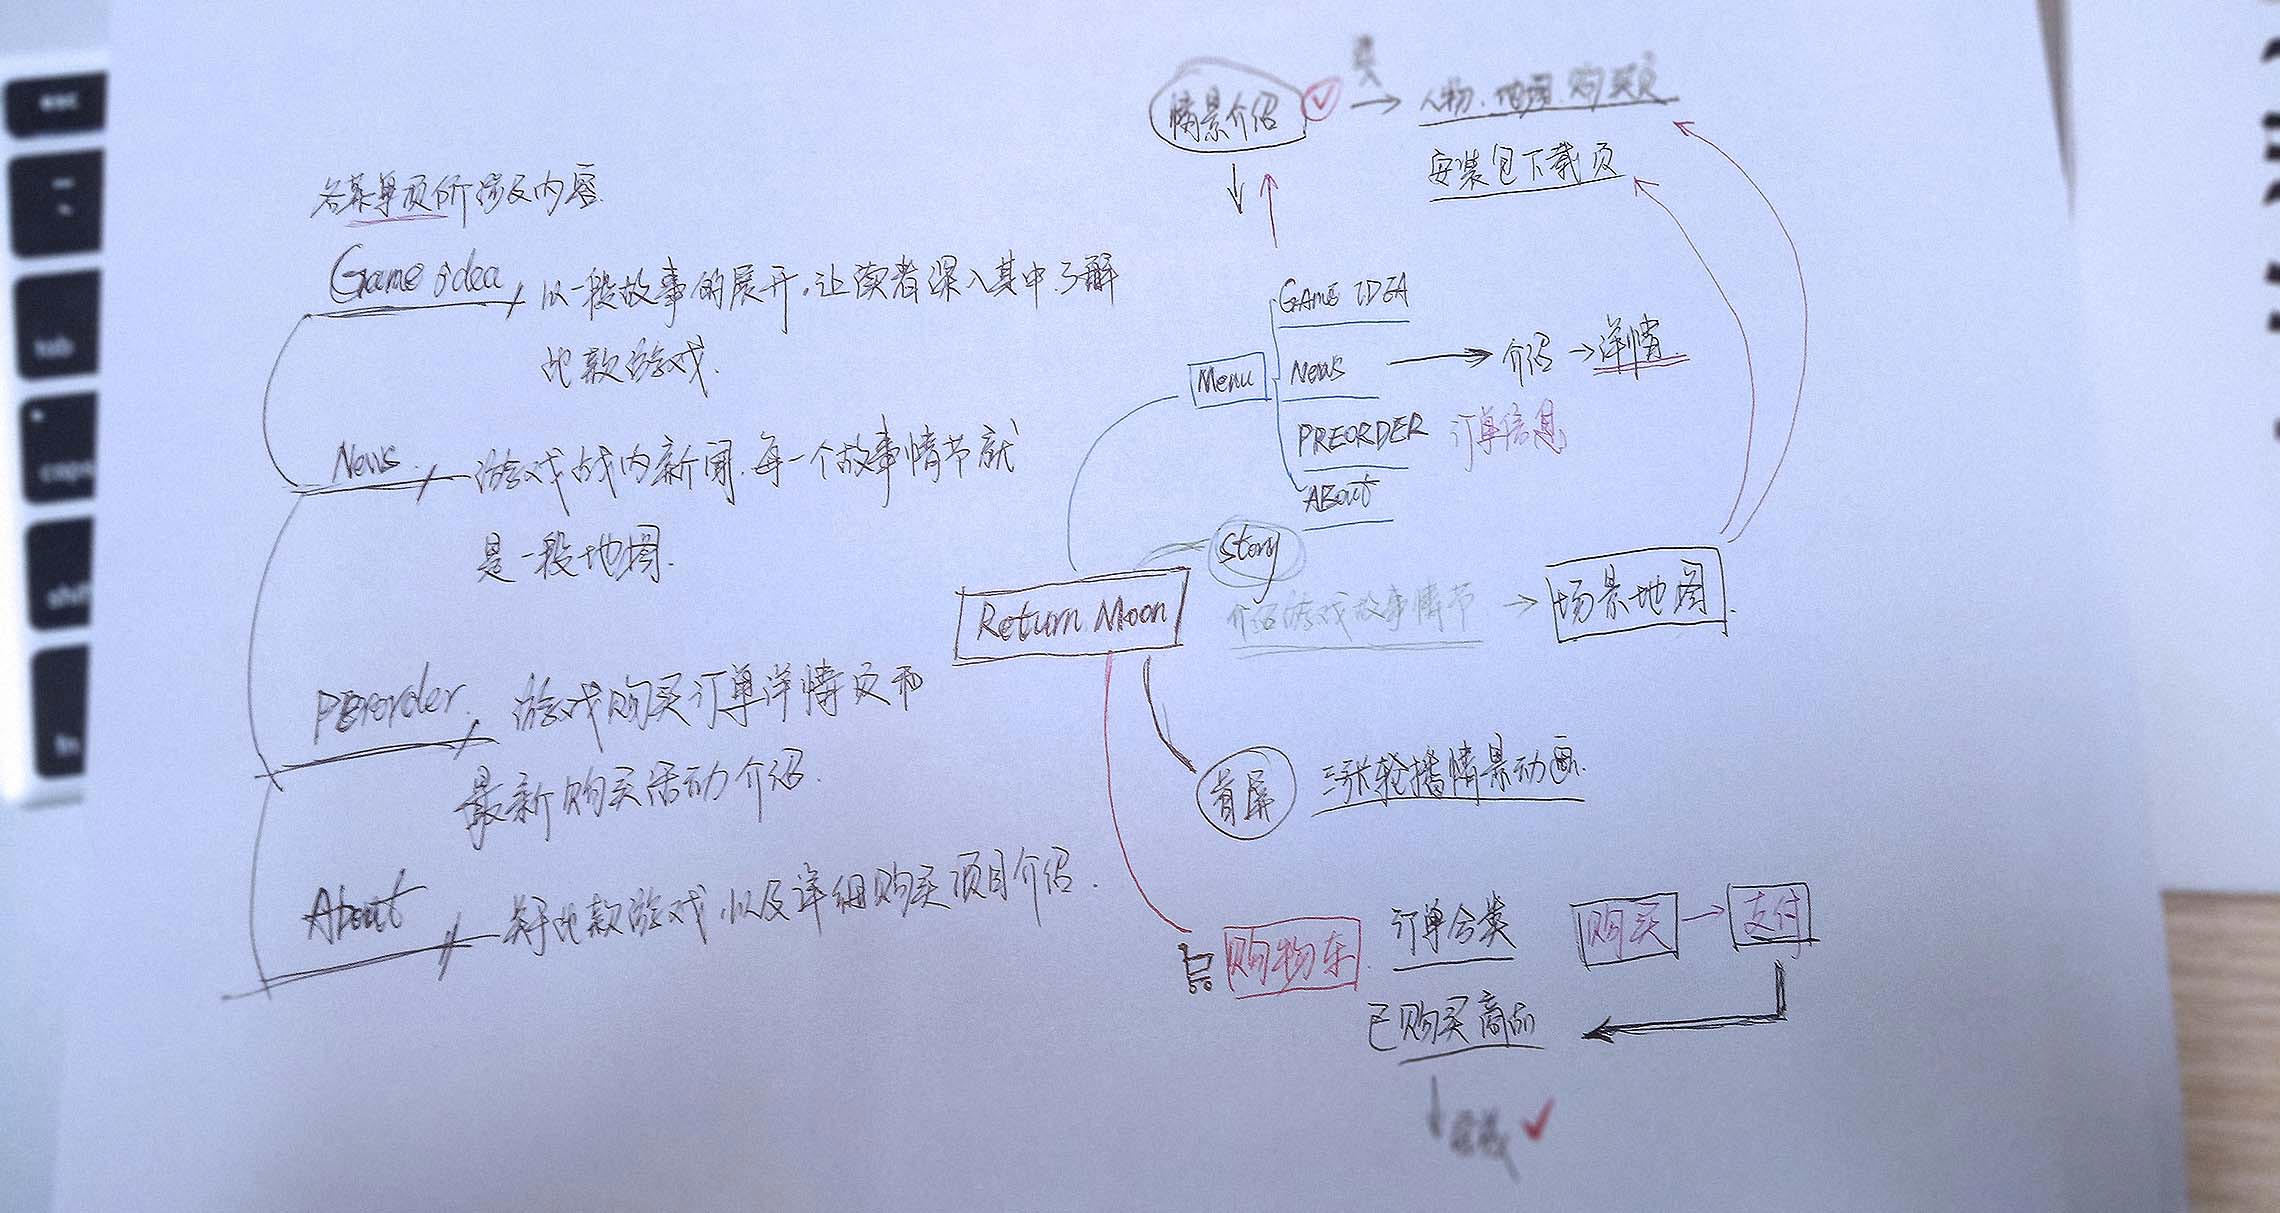 各菜单项所涉及内容
Game idea 以一段故事的展开,让读者深入其中了解
此款游戏.
News 游戏战内新闻,每一个故事情节就
是一段地图.
Preorder 游戏购买订单详情页和
最新购买活动介绍.
About 关于此款游戏,以及详细购买项目介绍.
情景介绍
人物、地图、购买页
安装包下载页
GAME IDEA
Menu
News
介绍
详情
PREORDER
订单信息
ABout
Story
Return Moon
介绍游戏故事情节
场景地图
首屏
三张轮播情景动画
购物车
订单分类
购买
支付
已购买商品
esc
tab
caps
shift
fn